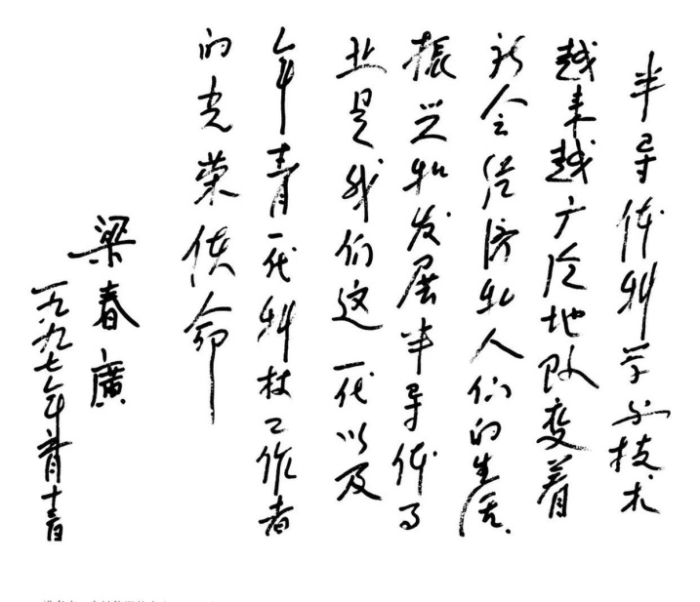 半导体科学与技术
越来越广泛地改变着
社会经济和人们的生活.
振兴和发展半导体事
业是我们这一代以及
年青一代科技工作者
的光荣使命
梁春廣
一九九七年